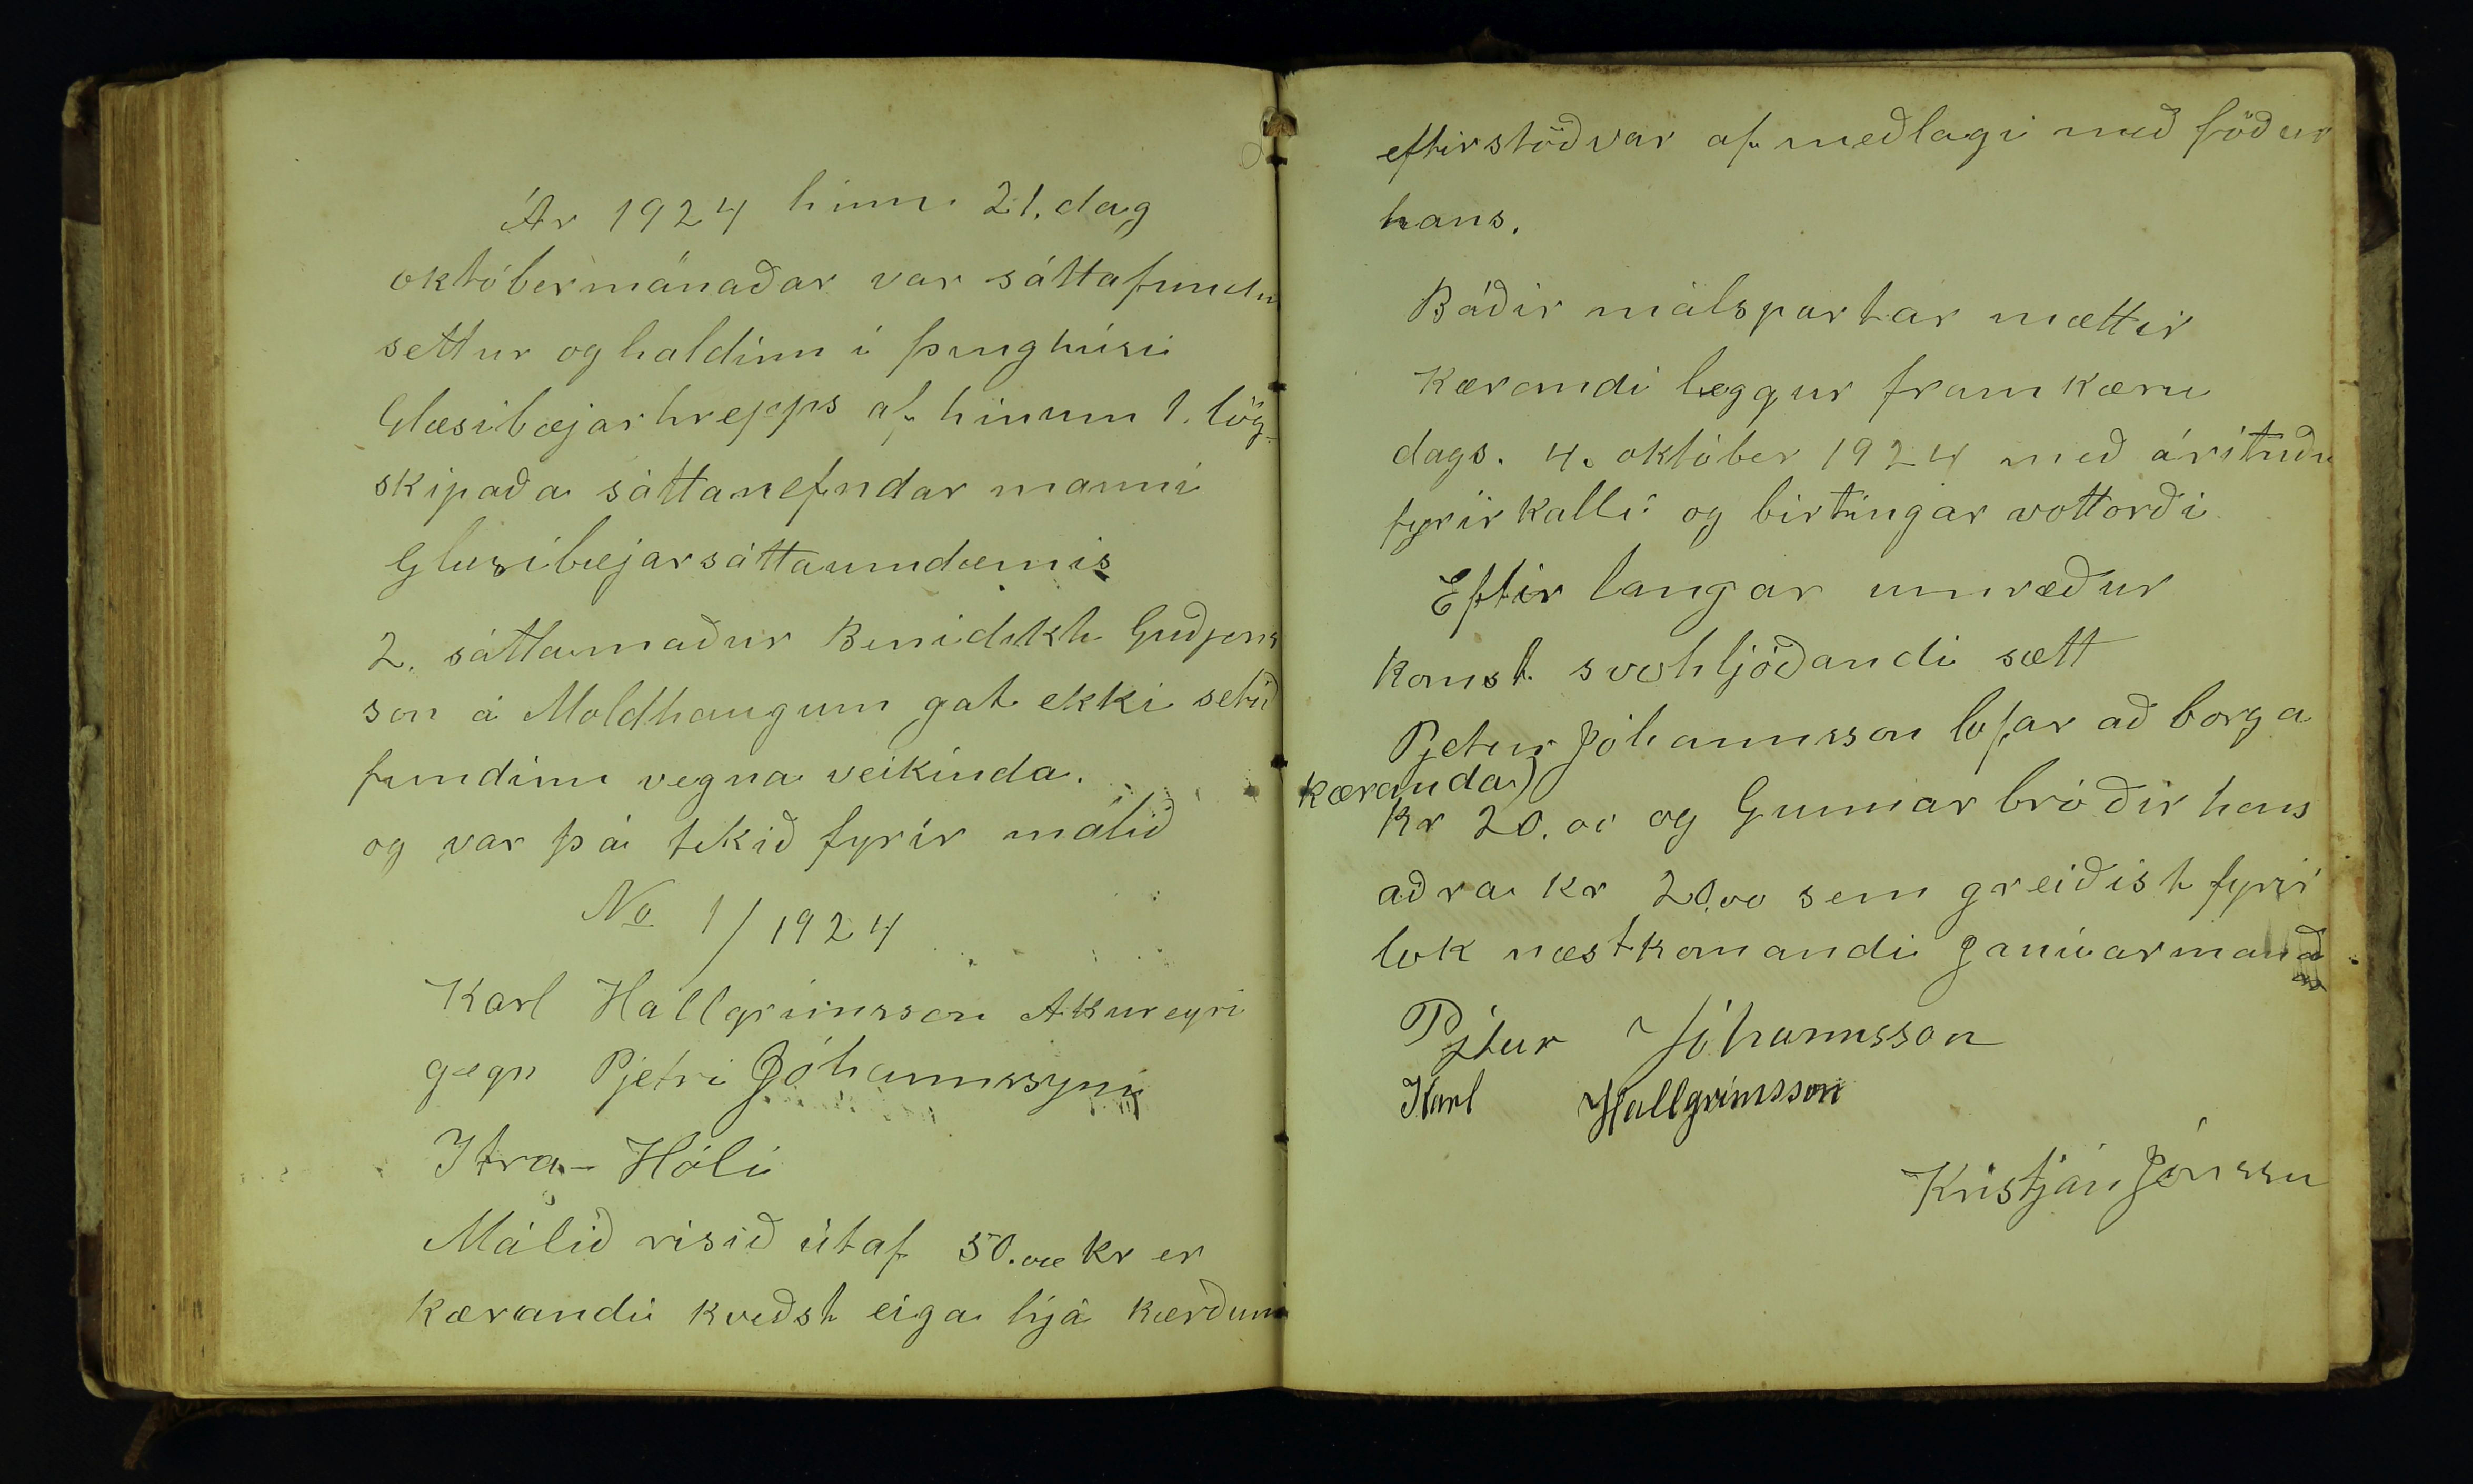 Ár 1924 hinn 21. dag
októbermánaðar var sáttafundur
settur og haldinn í þinghúsi
Glæsibæjarhrepps af hinum 1. lög-
skipaða sáttanefndar manni
Glæsibæjarsáttaumdæmis
2. sáttamaður Benidikt Guðjóns
son á Moldhaugum gat ekki setið
fundinn vegna veikinda.
og var þá tekið fyrir málið
No 1/1924
Karl Hallgrímsson Akureyri
gegn Pjetri Jóhannssyni
Itra-Hóli
Málið risið útaf 50.00 kr er
kærandi kveðst eiga hjá kærðum
eftirstöðvar af meðlagi með föður
hans.
Báðir málspartar mættir
Kærandi leggur fram kæru
dags. 4. október 1924 með árituðu
fyrirkalli og birtingar vottorði
Eftir langar umræður
komst svohljóðandi sætt
Pjetur Jóhannsson lofar að borga
kæranda)
kr 20.00 og Gunnar bróðir hans
aðra kr 20.00 sem greiðist fyrir
lok næstkomandi janúarmánaðar
Pjetur Jóhannsson
Karl Hallgrímsson
Kristján Jónsson